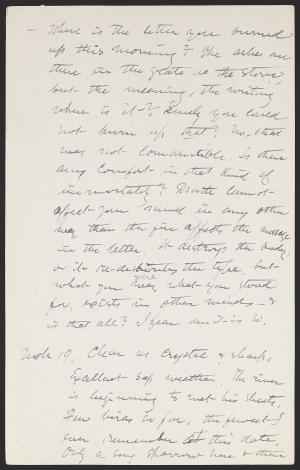 — Where is the letter you burned
up this morning? The ashes are
there in the grate or the stove,
but the meaning, the writing
where is it? Surely you could
not burn up that? No, that
was not combustible. Is there
any comfort in that kind of
immortality? Death cannot
affect your mind in any other
way than the fire affects the message
in the letter, it destroys the body,
or it re-distributes the type, but
what you were, what you stood
for, exists in other minds — &
is that all? I fear it is so.
Mch 19, Clear as crystal & sharp,
Excellent sap weather. The river
is beginning to wet his sheets,
Few birds so far, the fewest I
ever remember at this date,
Only a song sparrow here & there